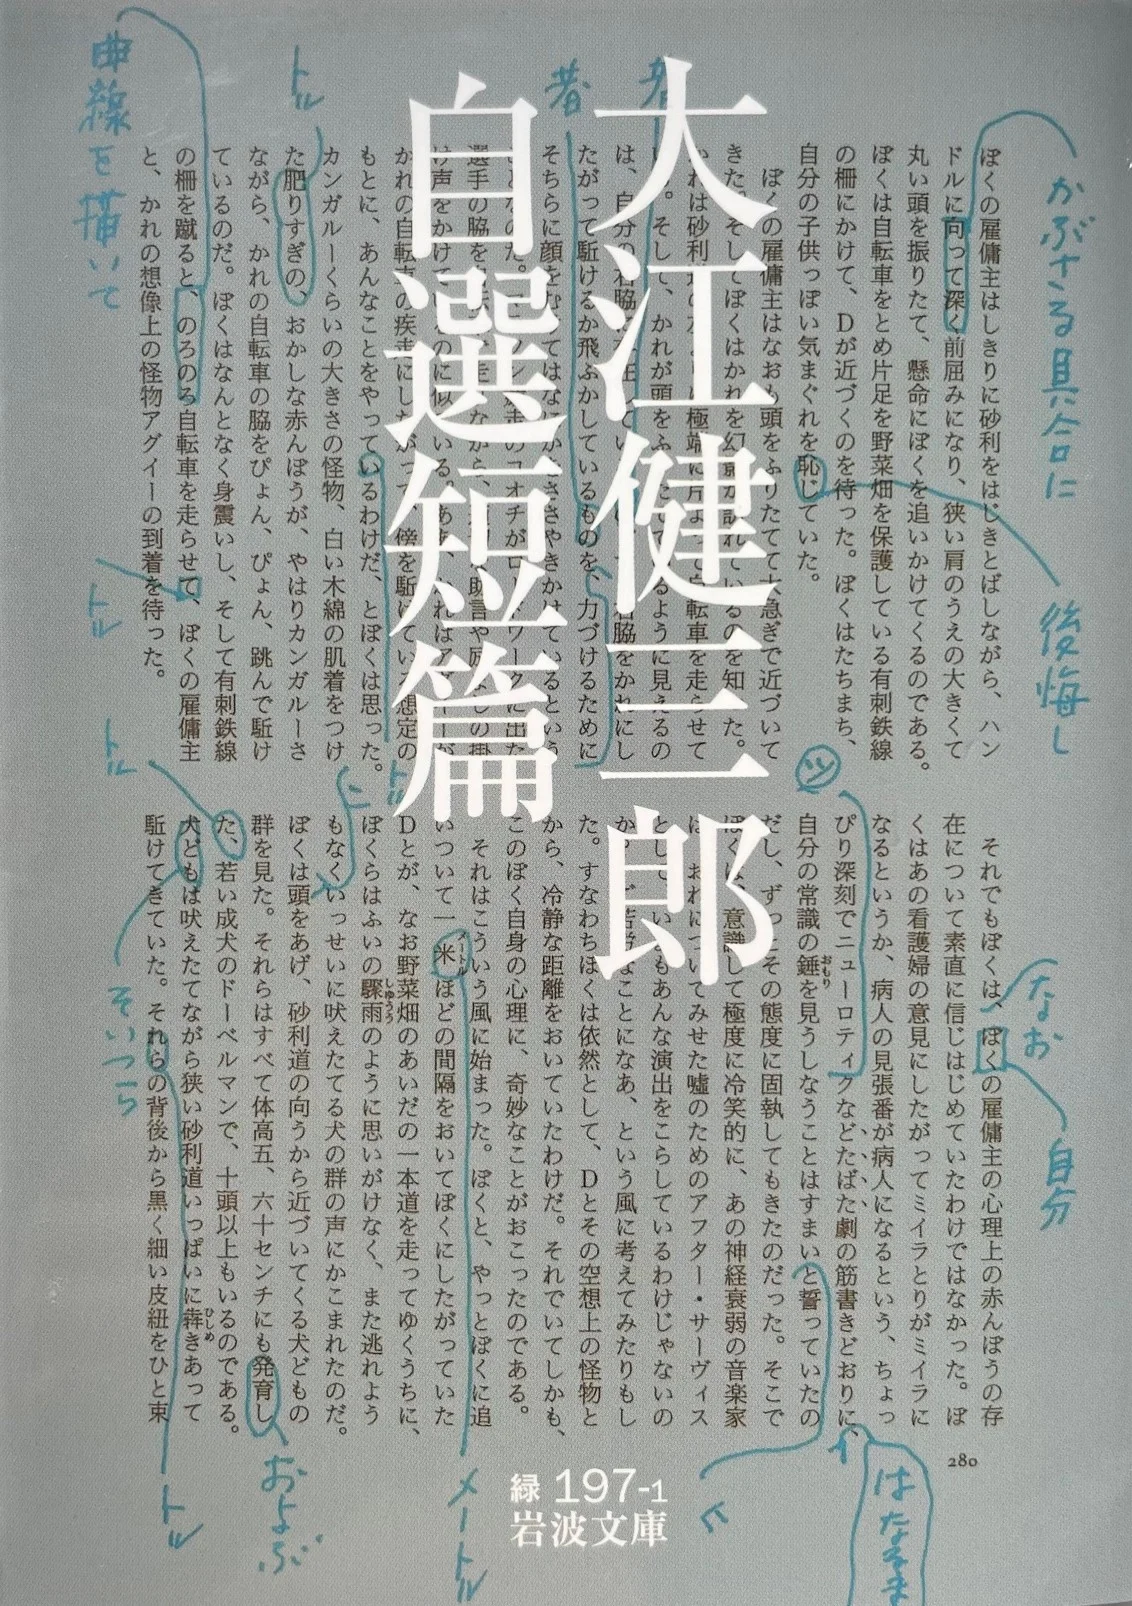 大江健三郎
自選短篇
緑197-1
岩波文庫
ぼくの雇傭主はしきりに砂利をはじきとばしながら、ハン
ドルに向って深く前屈みになり、狭い肩のうえの大きくて
丸い頭を振りたて、懸命にぼくを追いかけてくるのである。
ぼくは自転車をとめ片足を野菜畑を保護している有刺鉄線
の柵にかけて、Dが近づくのを待った。ぼくはたちまち、
自分の子供っぽい気まぐれを恥じていた。
ぼくの雇傭主はなおも頭をふりたてて大急ぎで近づいて
きた。そしてぼくはかれを幻影が訪れているのを知った。
かれは砂利道の 極端に片よって自転車を走らせて
いる。そして、かれが頭をふりたてているように見えるの
は、自分の右脇に 右脇をかれにし
たがって駈けるか飛ぶかしているものを、力づけるために
そちらに顔をむけてはなにかささやきかけているという
ことなのだ。 走のコオチがロードワークに出た
選手の脇を 走りながら、 助言や励ましの掛
け声をかけているのに似ている。ああ、かれはアグイーが
かれの自転車の疾走にしたがって、傍を駈けている想定の
もとに、あんなことをやっているわけだ、とぼくは思った。
カンガルーくらいの大きさの怪物、白い木綿の肌着をつけ
た肥りすぎの、おかしな赤んぼうが、やはりカンガルーさ
ながら、かれの自転車の脇をぴょん、ぴょん、跳んで駈け
ているのだ。ぼくはなんとなく身震いし、そして有刺鉄線
の柵を蹴ると、のろのろ自転車を走らせて、ぼくの雇傭主
と、かれの想像上の怪物アグイーの到着を待った。
それでもぼくは、ぼくの雇傭主の心理上の赤んぼうの存
在について素直に信じはじめていたわけではなかった。ぼ
くはあの看護婦の意見にしたがってミイラとりがミイラに
なるというか、病人の見張番が病人になるという、ちょっ
ぴり深刻でニューロティクなどたばた劇の筋書きどおりに、
自分の常識の錘おもりを見うしなうことはすまいと誓っていたの
だし、ずっとその態度に固執してもきたのだった。そこで
ぼくは、意識して極度に冷笑的に、あの神経衰弱の音楽家
は、おれについてみせた嘘のためのアフター・サーヴィス
として、いまもあんな演出をこらしているわけじゃないの
か? ご苦労なことになあ、という風に考えてみたりもし
た。すなわちぼくは依然として、Dとその空想上の怪物と
から、冷静な距離をおいていたわけだ。それでいてしかも、
このぼく自身の心理に、奇妙なことがおこったのである。
それはこういう風に始まった。ぼくと、やっとぼくに追
いついて一米メートルほどの間隔をおいてぼくにしたがっていた
Dとが、なお野菜畑のあいだの一本道を走ってゆくうちに、
ぼくらはふいの驟雨しゅううのように思いがけなく、また逃れよう
もなくいっせいに吠えたてる犬の群の声にかこまれたのだ。
ぼくは頭をあげ、砂利道の向うから近づいてくる犬どもの
群を見た。それらはすべて体高五、六十センチにも発育し
た、若い成犬のドーベルマンで、十頭以上もいるのである。
犬どもは吠えたてながら狭い砂利道いっぱいに犇ひしめきあって
駈けてきていた。それらの背後から黒く細い皮紐をひと束
280
かぶさる具合に
後悔し
なお
自分
ツ
トル
曲線を描いて
トル
トル
トル
そいつら
トル
およぶ
メートル